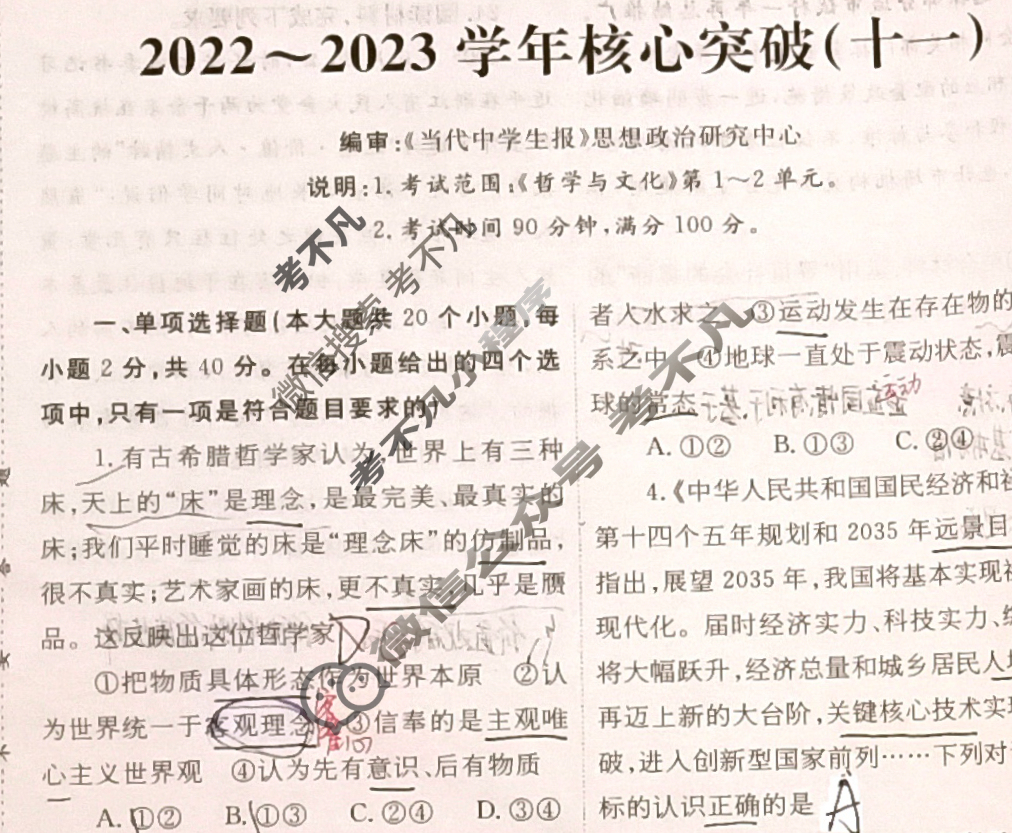 2022～2023学年核心突破(十一)
编审:《当代中学生报》思想政治研究中心
说明:1.考试范围:《哲学与文化》第1～2单元。
2.考试时间90分钟,满分100分。
一、单项选择题(本大题共20个小题,每
小题2分,共40分。在每小题给出的四个选
项中,只有一项是符合题目要求的)
1.有古希腊哲学家认为,世界上有三种
床,天上的“床”是理念,是最完美、最真实的
床;我们平时睡觉的床是“理念床”的仿制品,
很不真实;艺术家画的床,更不真实,几乎是赝
品。这反映出这位哲学家
①把物质具体形态作为世界本原 ②认
为世界统一于客观理念 ③信奉的是主观唯
心主义世界观 ④认为先有意识、后有物质
A.①② B.①③ C.②④ D.③④
者入水求之 ③运动发生在存在物的
系之中 ④地球一直处于震动状态,震
球的常态
运动
A.①② B.①③ C.②④
4.《中华人民共和国国民经济和社
第十四个五年规划和2035年远景目
指出,展望2035年,我国将基本实现社
现代化。届时经济实力、科技实力、综
将大幅跃升,经济总量和城乡居民人均
再迈上新的大台阶,关键核心技术实现
破,进入创新型国家前列……下列对
标的认识正确的是 A
考不凡
微信搜索 考不凡
考不凡小程序
微信公众号 考不凡